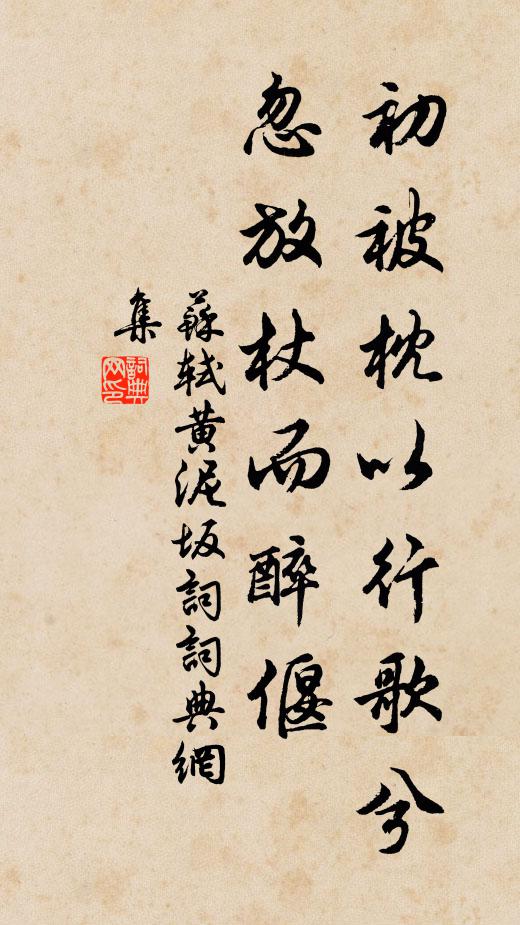 初被枕以行歌兮
忽放杖而醉偃
蘇軾黄泥坂詞詞典網
集
詞典
网印